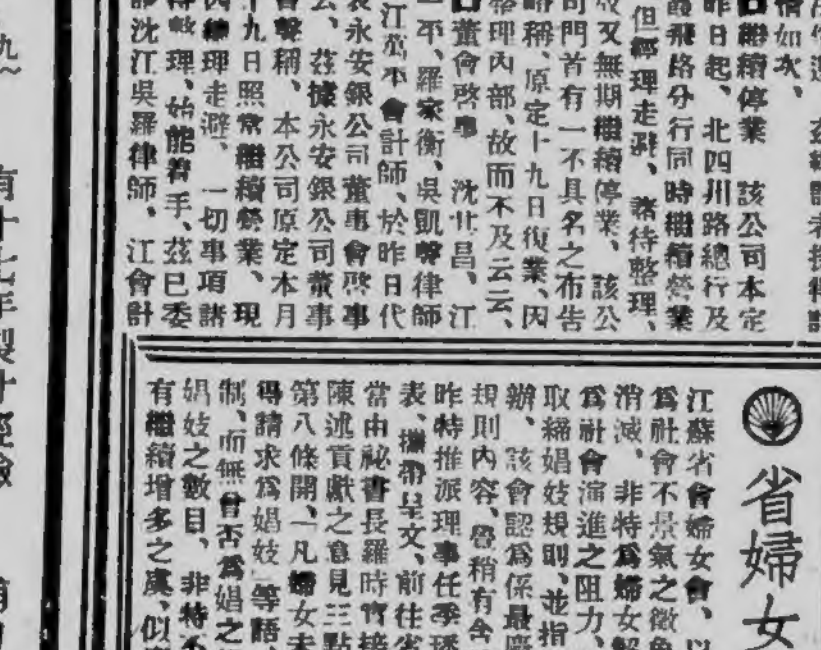 繼續停業　該公司本定
昨日起、北四川路總行及
霞飛路分行同時繼續營業
但經理走避、諸待整理、
故又無期繼續停業、該公
司門首有一不具名之布告
略稱、原定十九日復業、因
整理內部、故而不及云云、
董會啓事　沈北昌、江
一平、羅家衡、吳凱聲律師
江萬平會計師、於昨日代
表永安銀公司董事會啓事
公、茲據永安銀公司董事
會聲稱、本公司原定本月
十九日照常繼續營業、現
因總理走避、一切事項諸
待整理、始能着手、茲已委
沈江吳羅律師、江會計
有十七年製
省婦女
江蘇省會婦女會、以
爲社會不景氣之徵象
消滅、非特爲婦女解
爲社會演進之阻力、
取締娼妓規則、並指
辦、該會認爲係最
規則內容、曾稍有含
昨特推派理事任季
表、攜帶呈文、前往省
當由祕書長羅時實接
陳述貢獻之意見三點
第八條開、「凡婦女未
得請求爲娼妓」等語、
制、而無曾否爲娼之
娼妓之數目、非特不
有繼續增多之虞、似